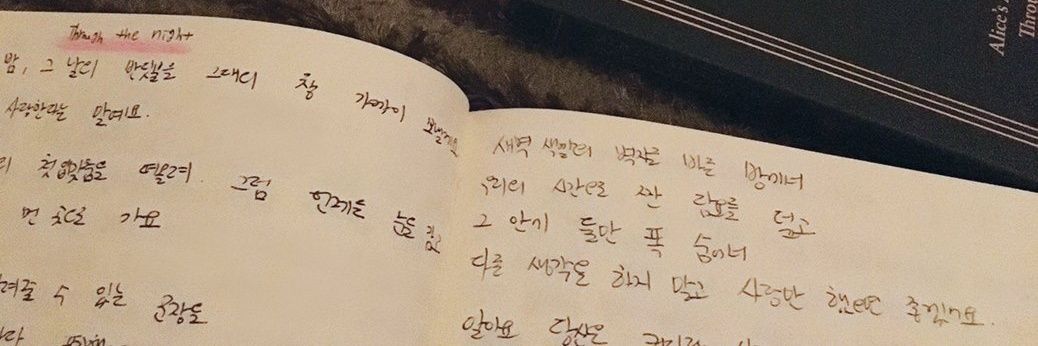 Through the night
밤, 그 날의 반딧불을 그대의 창 가까이 보낼게요
사랑한다는 말예요.
첫 입맞춤을 떠올려. 그럼 언제든 눈을 감고
먼 곳으로 가요
수 있는 문장도
새벽 색깔의 벽지를 바른 방에서
우리의 시간으로 짠 담요를 덮고
그 안에 둘만 푹 숨어서
다른 생각은 하지 말고 사랑만 했으면 좋겠어요.
알아요 당신은
Alice's
Throu